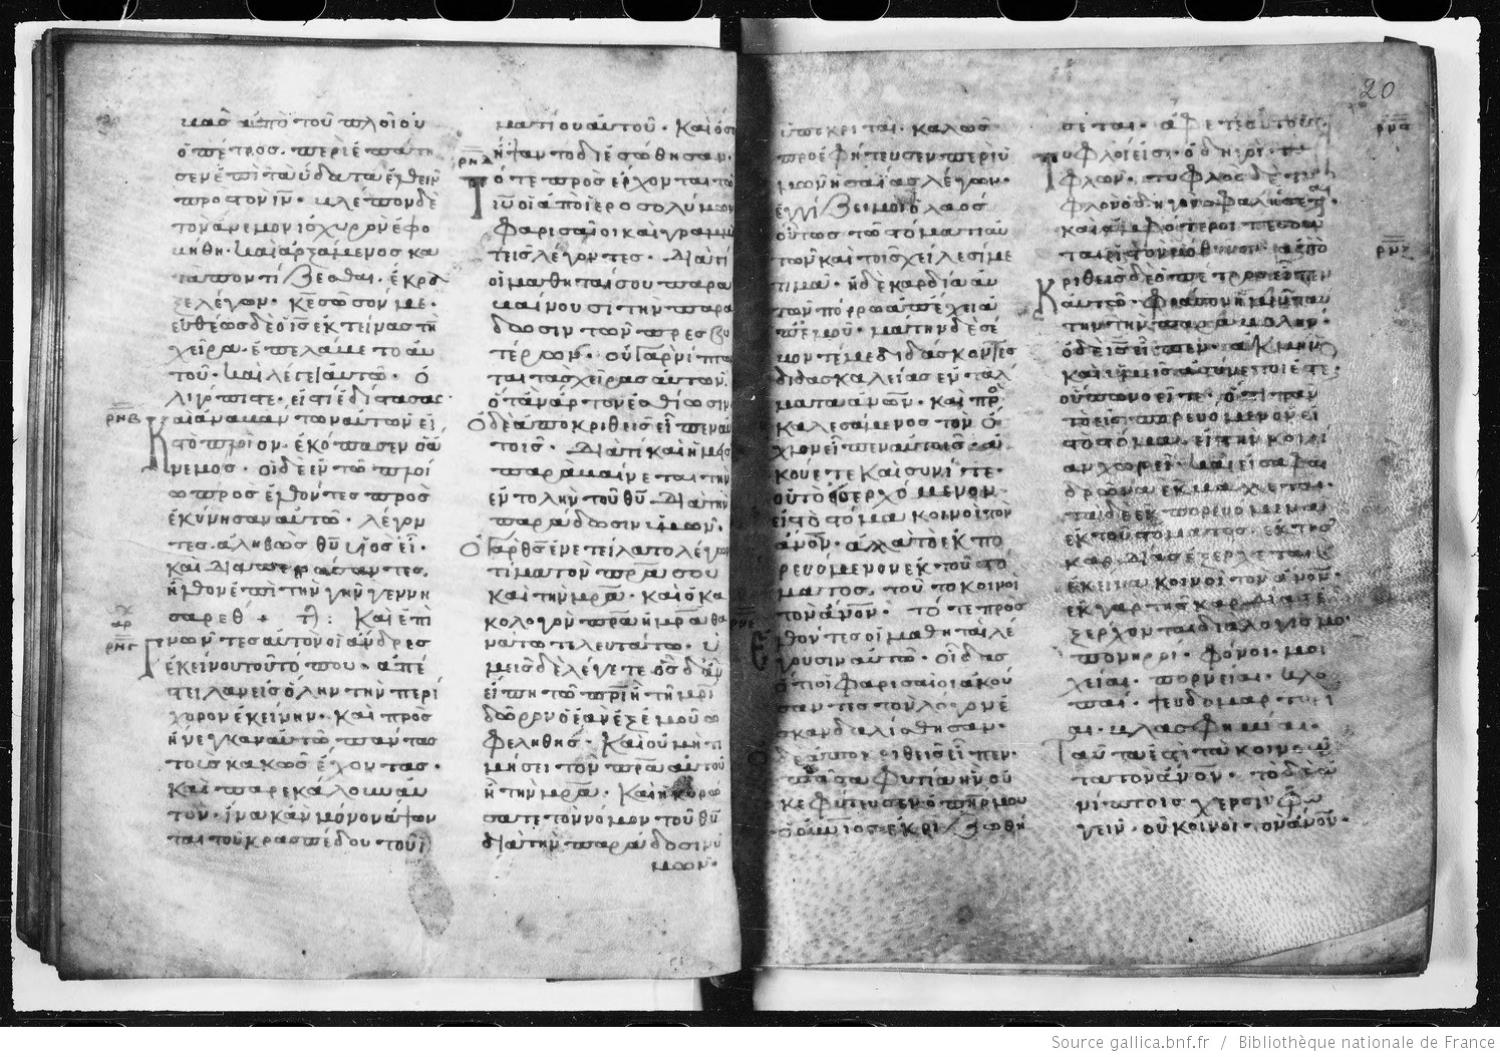 βὰσ ἀπὸ τοῦ πλοίου
ὁ πέτροσ. περιεπάτη
σεν ἐπὶ τὰ ὕδατα ἐλθεῖν
προσ τὸν ιν̅. βλέπων δὲ
τὸν ἄνεμον ἰσχυρὸν ἐφο
βήθη. καὶ ἀρξάμενος κα
ταποντίζεσθαι. ἔκρα
ξε λέγων. κε̅ σῶσόν με.
εὐθέωσ δὲ ὁ ισ̅ ἐκτείνασ τὴ
χεῖρα. ἐπελάβετο αὐ
τοῦ. καὶ λέγει αὐτῶ. ὁ
λιγόπιστε. εἰσ τί ἐδίστασασ.
ρνβ
Καὶ ἀναβάντων αὐτῶν εἰσ
τὸ πλοῖον. ἐκόπασεν ὁ ἄ
νεμοσ. οἱ δὲ ἐν τῶ πλοί
ω προσελθόντεσ προσ
εκύνησαν αὐτῶ. λέγον
τεσ. ἀληθῶσ θυ̅ υἱὸσ εἶ.
Καὶ διαπεράσαντεσ.
ἦλθον ἐπὶ τὴν γῆν γεννη
σαρεθ + Καὶ ἐπι
ρνγ
γνόντεσ αὐτὸν οἱ ἄνδρεσ
ἐκείνου τοῦ τόπου. ἀπέ
στειλαν εἰσ ὅλην τὴν περί
χορον ἐκείνην. καὶ προσ
ήνεγκαν αὐτῶ πάντασ
τοὺσ κακῶσ ἔχοντασ.
καὶ παρεκάλουν αὐ
τόν. ἵνα κἂν μόνον ἅψων
ται τοῦ κρασπέδου τοῦ ἱ
ματίου αὐτοῦ. Καὶ ὅσοι
ἥψαντο διεσώθησαν.
ρνδ
Τότε προσέρχονται τῶ
ιυ̅ οἱ ἀπὸ ἱεροσολύμων
Φαρισαῖοι καὶ γραμμα
τεῖσ λέγοντεσ. Διατί
οἱ μαθηταί σου παρα
βαίνουσι τὴν παρά
δοσιν τῶν πρεσβυ
τέρων. οὐ γὰρ νίπτον
ται τὰσ χεῖρασ αὐτῶν.
ὅταν ἄρτον ἐσθίωσιν
Ὁ δὲ ἀποκριθεὶσ εἶπεν αὐ
τοῖσ. Διατί καὶ ὑμεῖσ
παραβαίνετε τὴν
ἐντολὴν τοῦ θυ̅ διὰ τὴν
παράδοσιν ὑμῶν.
Ὁ γὰρ θσ̅ ἐνετείλατο λέγων
τίμα τὸν πρ̅α σου
καὶ τὴν μρ̅α. καὶ ὁ κα
κολογῶν πρ̅α ἢ μρ̅α θα
νάτω τελευτάτω. ὑ
μεῖσ δὲ λέγετε ὃσ δ' ἂν
εἴπη τῶ πρ̅ι ἢ τῆ μρ̅ι
δῶρον ὃ ἐὰν ἐξ ἐμοῦ ὠ
φεληθῆσ. Καὶ οὐ μὴ τι
μήσει τὸν πρ̅α αὐτοῦ
ἢ τὴν μρ̅α. Καὶ ἠκυρώ
σατε τὸν νόμον τοῦ θυ̅
διὰ τὴν παράδοσιν ὑ
μῶν.
20
ὑποκριταί. καλῶσ
προεφήτευσεν περὶ ὑ
μῶν ἠσαΐασ λέγων.
ἐγγίζει μοι ὁ λαὸσ
οὗτοσ τῶ στόματι αὐ
τῶν καὶ τοῖσ χείλεσί με
τιμᾶ. ἡ δὲ καρδία αὐ
τῶν πόρρω ἀπέχει ἀ
π' ἐμοῦ. μάτην δὲ σέ
βονταί με διδάσκοντεσ
διδασκαλείασ ἐντάλ
ματα ἀνω̅ν. καὶ προσ
καλεσάμενοσ τὸν ὄ
χλον εἶπεν αὐτοῖσ. ἀ
κούετε καὶ συνίετε.
οὐ τὸ εἰσερχόμενον
εἰσ τὸ στόμα κοινοῖ τὸν
ἀν̅ον. ἀλλὰ τὸ ἐκπο
ρευόμενον ἐκ τοῦ στό
ματοσ. τοῦτο κοινοῖ
τὸν ἀν̅ον. τότε προσ
ρνε
ελθόντεσ οἱ μαθηταὶ λέ
γουσιν αὐτῶ. οἶδασ
ὅτι οἱ Φαρισαῖοι ἀκού
σαντεσ τὸν λόγον ἐ
σκανδαλίσθησαν.
Ὁ δὲ ἀποκριθεὶσ εἶπεν.
πᾶσα φυτεία ἣν οὐ
κ ἐφύτευσεν ὁ πηρ μου
ὁ οὐνιοσ ἐκριζωθή
σεται. ἄφετε αὐτούσ.
ρνς
Τυφλοί εἰσι ὁδηγοὶ τυ
φλῶν. τυφλὸσ δὲ τυ
φλὸν ὁδηγῶν σφαλήσεται
καὶ ἀμφότεροι πεσοῦν
ται εἰσ τὸν βόθυνον. ἀπο
ρνζ
κριθεὶσ δὲ ὁ πέτροσ εἶπεν
αὐτῶ. φράσον ἡμῖν
τὴν παραβολήν.
ὁ δὲ ισ̅ εἶπεν. ἀκμὴν
καὶ ὑμεῖσ ἀσύνετοί ἐστε.
οὔπω νοεῖτε. ὅτι πᾶν
τὸ εἰσπορευόμενον εἰσ
τὸ στόμα. εἰσ τὴν κοιλί
αν χωρεῖ. καὶ εἰσ ἀφε
δρῶνα ἐκβάλλεται.
τὰ δὲ ἐκπορευόμενα
ἐκ τοῦ στόματοσ. ἐκ τῆσ
καρδίασ ἐξέρχεται
ἐκεῖνα κοινοῖ τὸν ἀν̅ον.
ἐκ γὰρ τῆσ καρδίασ ἐ
ξέρχονται διαλογισμοὶ
πονηροί. φόνοι. μοι
χεῖαι. πορνεῖαι. κλο
παί. ψευδομαρτυρί
αι. βλασφημίαι.
ταῦτά ἐστι τὰ κοινοῦν
τα τὸν ἀν̅ον. τὸ δὲ ἀ
νίπτοισ χερσὶν φα
γεῖν. οὐ κοινοῖ τὸν ἀν̅ον.
Source gallica.bnf.fr / Bibliothèque nationale de France